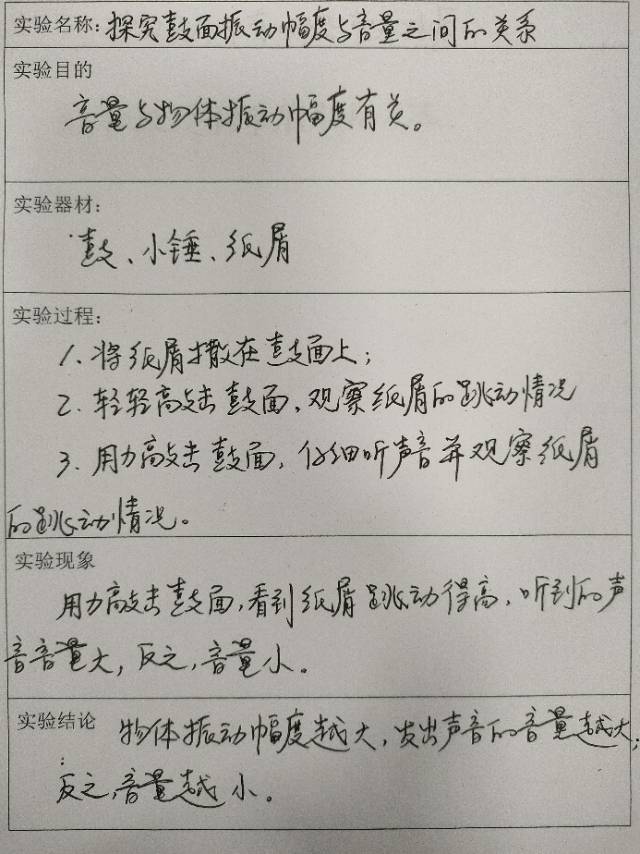 实验名称:探究鼓面振动幅度与音量之间的关系
实验目的
音量与物体振动幅度有关。
实验器材:
鼓、小锤、纸屑
实验过程:
1. 将纸屑撒在鼓面上;
2. 轻轻敲击鼓面,观察纸屑的跳动情况
3. 用力敲击鼓面,仔细听声音并观察纸屑
的跳动情况。
实验现象
用力敲击鼓面,看到纸屑跳动得高,听到的声
音音量大,反之,音量小。
实验结论 物体振动幅度越大,发出声音的音量越大;
:
反之,音量越小。